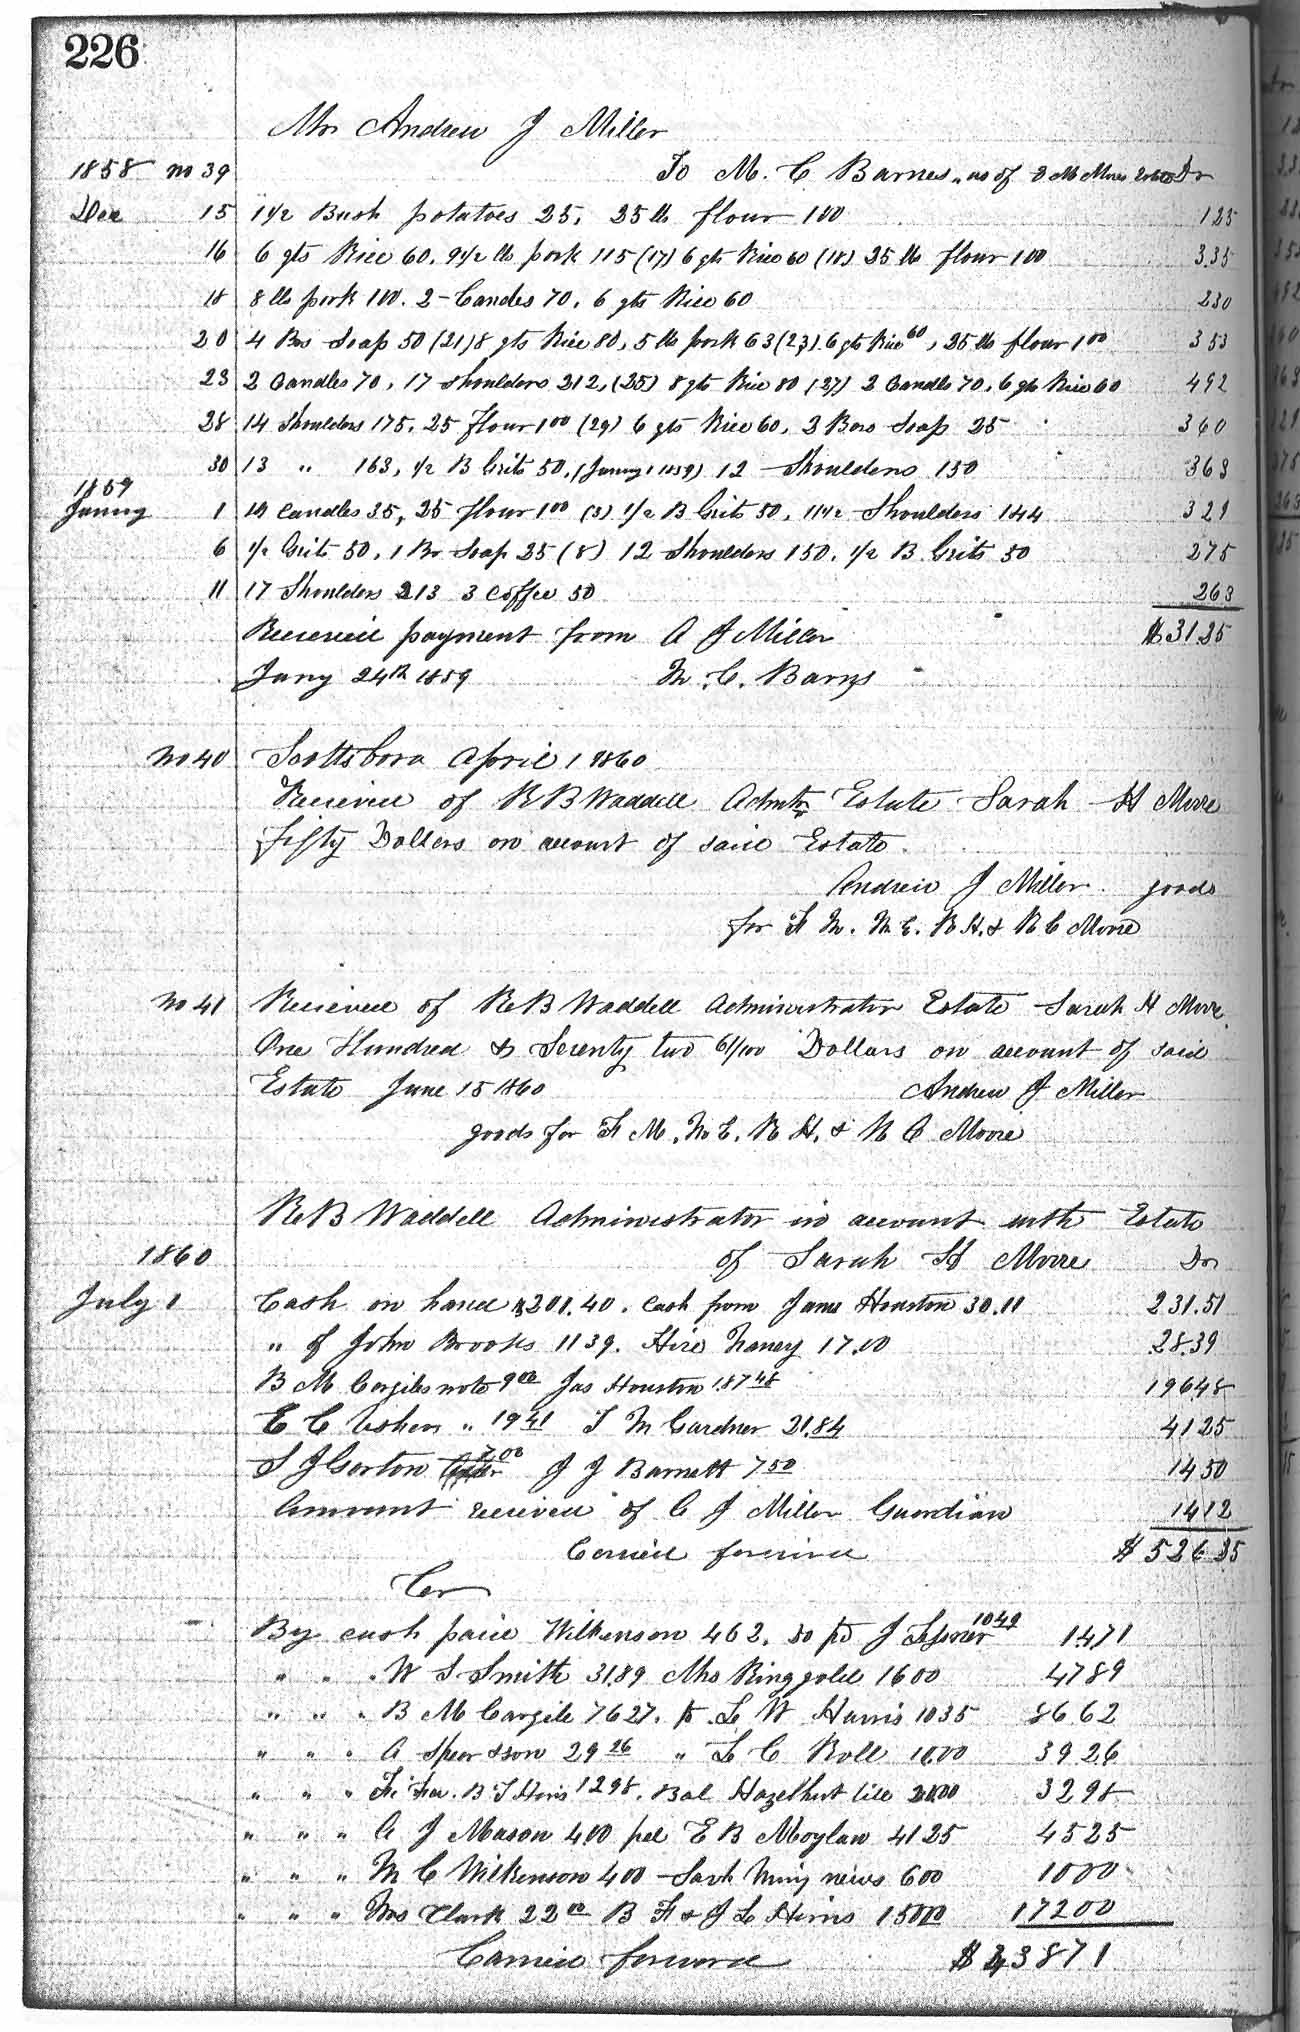 226
Mr Andrew J Miller
1858 no 39 To M. C Barnes, as of Dr
Dec 15 1 1/2 Bush potatoes 25, 25 lb flour 100 125
16 6 qts Rice 60, 9 1/2 lb pork 115 (17) 6 qts Rice 60 (18) 25 lb flour 100 3.35
18 8 lb pork 100. 2 - Candles 70, 6 qts Rice 60 230
20 4 Brs Soap 50 (21) 8 qts Rice 80, 5 lb pork 63 (23) 6 qts Rice 60, 25 lb flour 100 353
23 2 Candles 70, 17 Shoulders 212, (25) 8 qts Rice 80 (27) 2 Candles 70, 6 qts Rice 60 492
28 14 Shoulders 175, 25 Flour 100 (29) 6 qts Rice 60, 2 Bars Soap 25 360
30 13 " 163, 1/2 B Grits 50, (Januy 1 1859) 12 Shoulders 150 363
1859
Januy 1 Candles 35, 25 flour 100 (3) 1/2 B Grits 50, 11 1/2 Shoulders 144 329
6 1/2 Grits 50, 1 Br Soap 25 (8) 12 Shoulders 150, 1/2 B Grits 50 275
11 17 Shoulders 213 3 Coffee 50 263
Received payment from A J Miller $31.25
Jany 24th 1859 M. C. Barns
No 40 Scottsboro April 1 1860
Received of R B Waddell Admtr Estate Sarah H Moore
fifty Dollars on account of said Estate.
Andrew J Miller. goods
for F M. M E. R H. & R C Moore
No 41 Recieved of R B Waddell Administrator Estate Sarah H Moore
One Hundred & Seventy two 61/100 Dollars on account of said
Estate June 15 1860 Andrew J Miller
goods for F M, M E, R H, & R C Moore
R B Waddell Administrator in account with Estate
1860 of Sarah H Moore Dr
July 1 Cash on hand $201.40. cash from Jame Houston 30.11 231.51
" of John Brooks 11 39. Hire Nancy 17.00 28.39
B M Cargiles note 9 00 Jas Houston 187 48 19648
E C Ushers " 19 41 T M Gardner 21.84 4125
S J Gorton 7 00 J J Barnett 7 50 1450
Amount received of A J Miller Guardian 1412
Carried forward $ 526 25
Cr
By cash paid Wilkenson 462. Do pd J 1049 1471
" " " W S Smith 31.89 Mrs Ringgold 1600 4789
" " " B M Cargile 7627. to L W Harris 1035 8662
" " " A Spear & son 29 26 " L C Roll 10.00 39 26
" " " Fi Fa. B T Hirris 1298. Bal Hazelhurst bill 2000 3298
" " " A J Mason 400 pd E B Moylan 4125 4525
" " " M C Wilkenson 400 Savh Mning news 600 1000
" " " Mrs Clark 22 00 B F & J L Hirris 15000 17200
Carried forward $ 43871